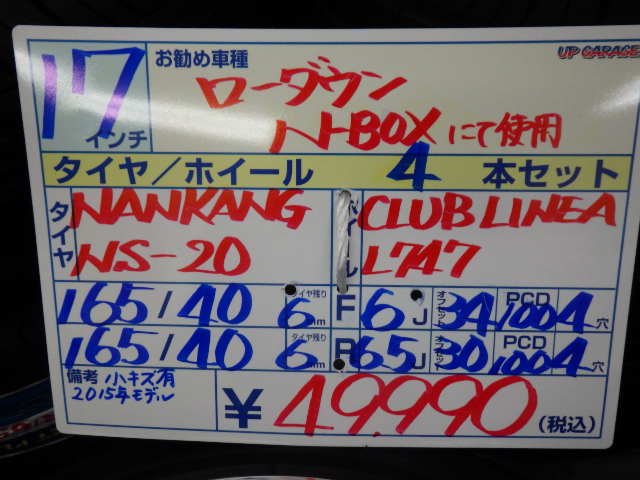 17インチ お勧め車種 UP GARAGE
ローダウン
N-BOXにて使用
タイヤ/ホイール 4 本セット
タイヤ NANKANG NS-20
ホイール CLUB LINEA L747
165/40 タイヤ残り6mm F 6J オフセット34 PCD100 4穴
165/40 タイヤ残り6mm R 6.5J オフセット30 PCD100 4穴
備考 小キズ有
2015年モデル
¥49,990(税込)